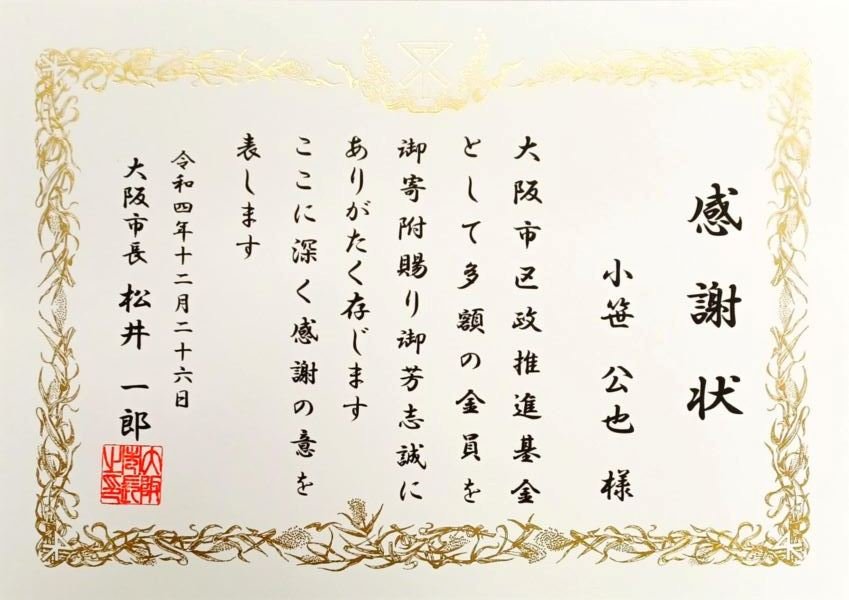 感謝状
小笹 公也 様
大阪市区政推進基金
として多額の金員を
御寄附賜り御芳志誠に
ありがたく存じます
ここに深く感謝の意を
表します
令和四年十二月二十六日
大阪市長 松井 一郎
大阪市長之印